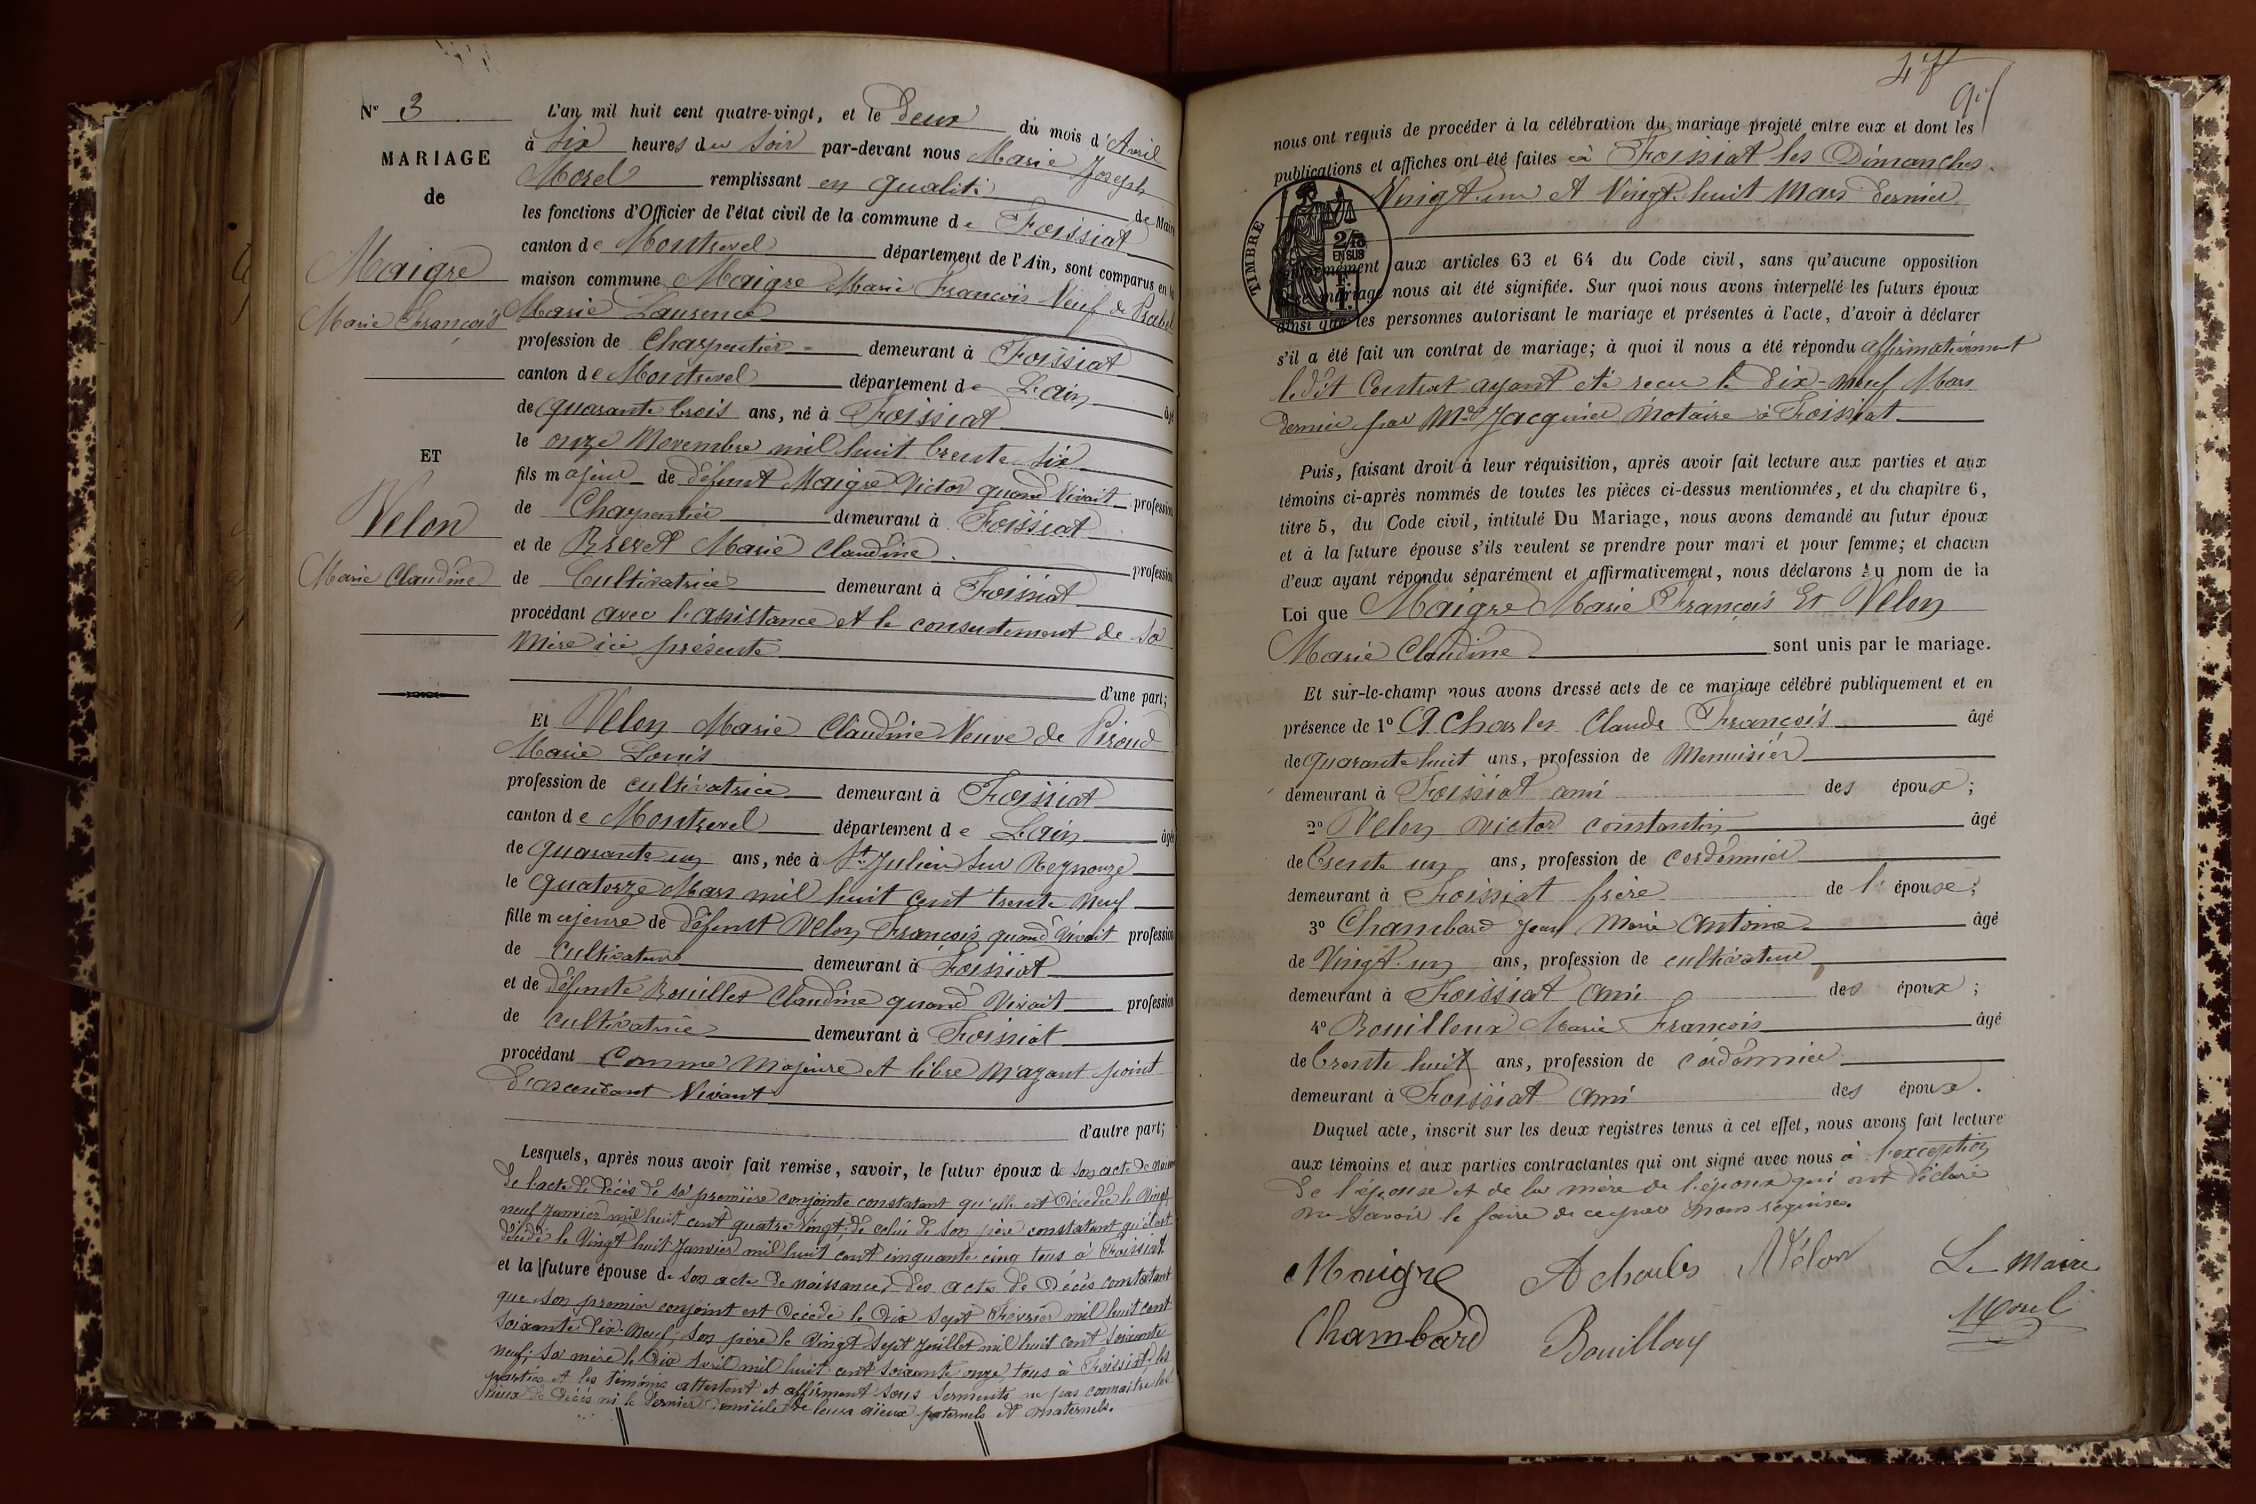 Nº 3
MARIAGE
de
Maigre
Marie François
ET
Velon
Marie Claudine
L'an mil huit cent quatre-vingt, et le deux du mois d'Avril
à six heures du soir par-devant nous Marie Joseph
Morel remplissant en qualité de Maire
les fonctions d'Officier de l'état civil de la commune de Foissiat
canton de Montrevel département de l'Ain, sont comparus en la
maison commune Maigre Marie François Veuf de
Marie Laurence
profession de Charpentier demeurant à Foissiat
canton de Montrevel département de L'ain âgé
de quarante trois ans, né à Foissiat
le onze Novembre mil huit trente six
fils majeur de défunt Maigre Victor quand vivait profession
de Charpentier demeurant à Foissiat
et de Brevet Marie Claudine profession
de Cultivatrice demeurant à Foissiat
procédant avec l'assistance et le consentement de sa
mère ici présente
d'une part;
Et Velon Marie Claudine Veuve de Piroud
Marie Louis
profession de cultivatrice demeurant à Foissiat
canton de Montrevel département de L'ain âgée
de quarante un ans, née à St Julien sur Reyssouze
le quatorze Mars mil huit cent trente neuf
fille majeure de défunt Velon François quand vivait profession
de cultivateur demeurant à Foissiat
et de défunte Bouillet Claudine quand vivait profession
de cultivatrice demeurant à Foissiat
procédant comme majeure et libre n'ayant point
d'ascendant vivant
d'autre part;
Lesquels, après nous avoir fait remise, savoir, le futur époux de son acte de
de l'acte de décès de sa première conjointe constatant qu'elle est décédée le vingt
neuf Janvier mil huit cent quatre vingt; de celui de son père constatant qu'il est
décédé le vingt huit Janvier mil huit cent cinquante cinq tous à Foissiat
et la future épouse de son acte de naissance; des actes de décès constatant
que son premier conjoint est décédé le dix sept Février mil huit cent
soixante dix-neuf; son père le vingt sept Juillet mil huit cent soixante
neuf; sa mère le dix avril mil huit cent soixante onze, tous à Foissiat, les
parties et les témoins attestent et affirment sous serments ne pas connaître les
lieux de décès ni le dernier domicile de leurs aïeux paternels et maternels.
47
nous ont requis de procéder à la célébration du mariage projeté entre eux et dont les
publications et affiches ont été faites à Foissiat les Dimanches
Vingt-un et Vingt-huit Mars dernier
TIMBRE
2/10
EN SUS
conformément aux articles 63 et 64 du Code civil, sans qu'aucune opposition
mariage nous ait été signifiée. Sur quoi nous avons interpellé les futurs époux
ainsi que les personnes autorisant le mariage et présentes à l'acte, d'avoir à déclarer
s'il a été fait un contrat de mariage; à quoi il nous a été répondu affirmativement
ledit Contrat ayant été reçu le dix-neuf Mars
dernier par Me Jacquier Notaire à Foissiat
Puis, faisant droit à leur réquisition, après avoir fait lecture aux parties et aux
témoins ci-après nommés de toutes les pièces ci-dessus mentionnées, et du chapitre 6,
titre 5, du Code civil, intitulé Du Mariage, nous avons demandé au futur époux
et à la future épouse s'ils veulent se prendre pour mari et pour femme; et chacun
d'eux ayant répondu séparément et affirmativement, nous déclarons au nom de la
Loi que Maigre Marie François Et Velon
Marie Claudine sont unis par le mariage.
Et sur-le-champ nous avons dressé acte de ce mariage célébré publiquement et en
présence de 1º Acharles Claude François âgé
de quarante huit ans, profession de Menuisier
demeurant à Foissiat ami des époux;
2º Velon Victor constantin âgé
de trente un ans, profession de cordonnier
demeurant à Foissiat frère de l'épouse;
3º Chambard Jean Marie Antoine âgé
de Vingt-un ans, profession de cultivateur
demeurant à Foissiat ami des époux;
4º Bouilloux Marie François âgé
de trente huit ans, profession de cordonnier
demeurant à Foissiat ami des époux.
Duquel acte, inscrit sur les deux registres tenus à cet effet, nous avons fait lecture
aux témoins et aux parties contractantes qui ont signé avec nous à l'exception
de l'épouse et de la mère de l'époux qui ont déclaré
ne savoir le faire de ce par nous requises.
Maigre Acharles Vélon Le Maire
Chambard Bouilloux Morel